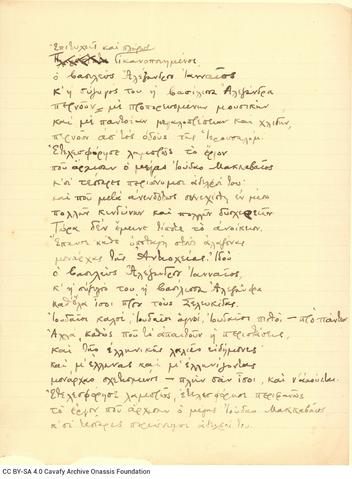 Επιτυχείς και πλήρως
ικανοποιημένοι,
ο βασιλεύς Αλέξανδρος Ιανναίος,
κ' η σύζυγός του η βασίλισσα Αλεξάνδρα
περνούν με προπορευομένην μουσικήν
και με παντοίαν μεγαλοπρέπειαν και χλιδήν,
περνούν απ' τες οδούς της Ιερουσαλήμ.
Ετελεσφόρησε λαμπρώς το έργον
που άρχισαν ο μέγας Ιούδας Μακκαβαίος
κ' οι τέσσαρες περιώνυμοι αδελφοί του·
και που μετά ανενδότως συνεχίσθη εν μέσω
πολλών κινδύνων και πολλών δυσχερειών.
Τώρα δεν έμεινε τίποτε το ανοίκειον.
Έπαυσε κάθε υποταγή στους αλαζόνας
μονάρχας της Αντιοχείας. Ιδού
ο βασιλεύς Αλέξανδρος Ιανναίος,
κ' η σύζυγός του η βασίλισσα Αλεξάνδρα
καθ' όλα ίσοι προς τους Σελευκίδας.
Ιουδαίοι καλοί, Ιουδαίοι αγνοί, Ιουδαίοι πιστοί — προ πάντων.
Αλλά, καθώς που το απαιτούν η περιστάσεις,
και της ελληνικής λαλιάς ειδήμονες·
και μ' Έλληνας και μ' ελληνίζοντας
μονάρχας σχετισμένοι — πλην σαν ίσοι, και ν' ακούεται.
Ετελεσφόρησε λαμπρώς, ετελεσφόρησε περιφανώς
το έργον που άρχισαν ο μέγας Ιούδας Μακκαβαίος
κ' οι τέσσαρες περιώνυμοι αδελφοί του.
CC BY-SA 4.0 Cavafy Archive Onassis Foundation